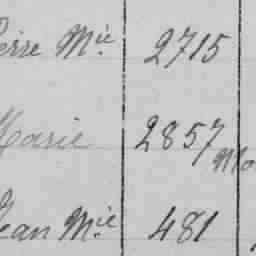 Pierre Mie 2715
Marie 2857
Jean Mie 481